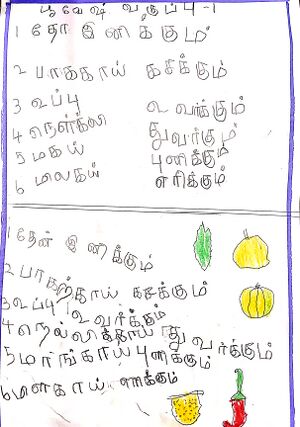 பூவேஷ் வகுப்பு-1
1 தோ இனிக்கும்
2 பாக்காய் கசக்கும்
3 உப்பு உவர்க்கும்
4 நெள்கலி துவர்கும்
5 மகய் புனிக்கும்
6 மிலகய் எரிக்கும்
1 தேன் இனிக்கும்
2 பாகற்காய் கசக்கும்
3 உப்பு உவர்க்கும்
4 நெல்லிக்காய் துவர்க்கும்
5 மாங்காய் புளிக்கும்
6 மிளகாய்